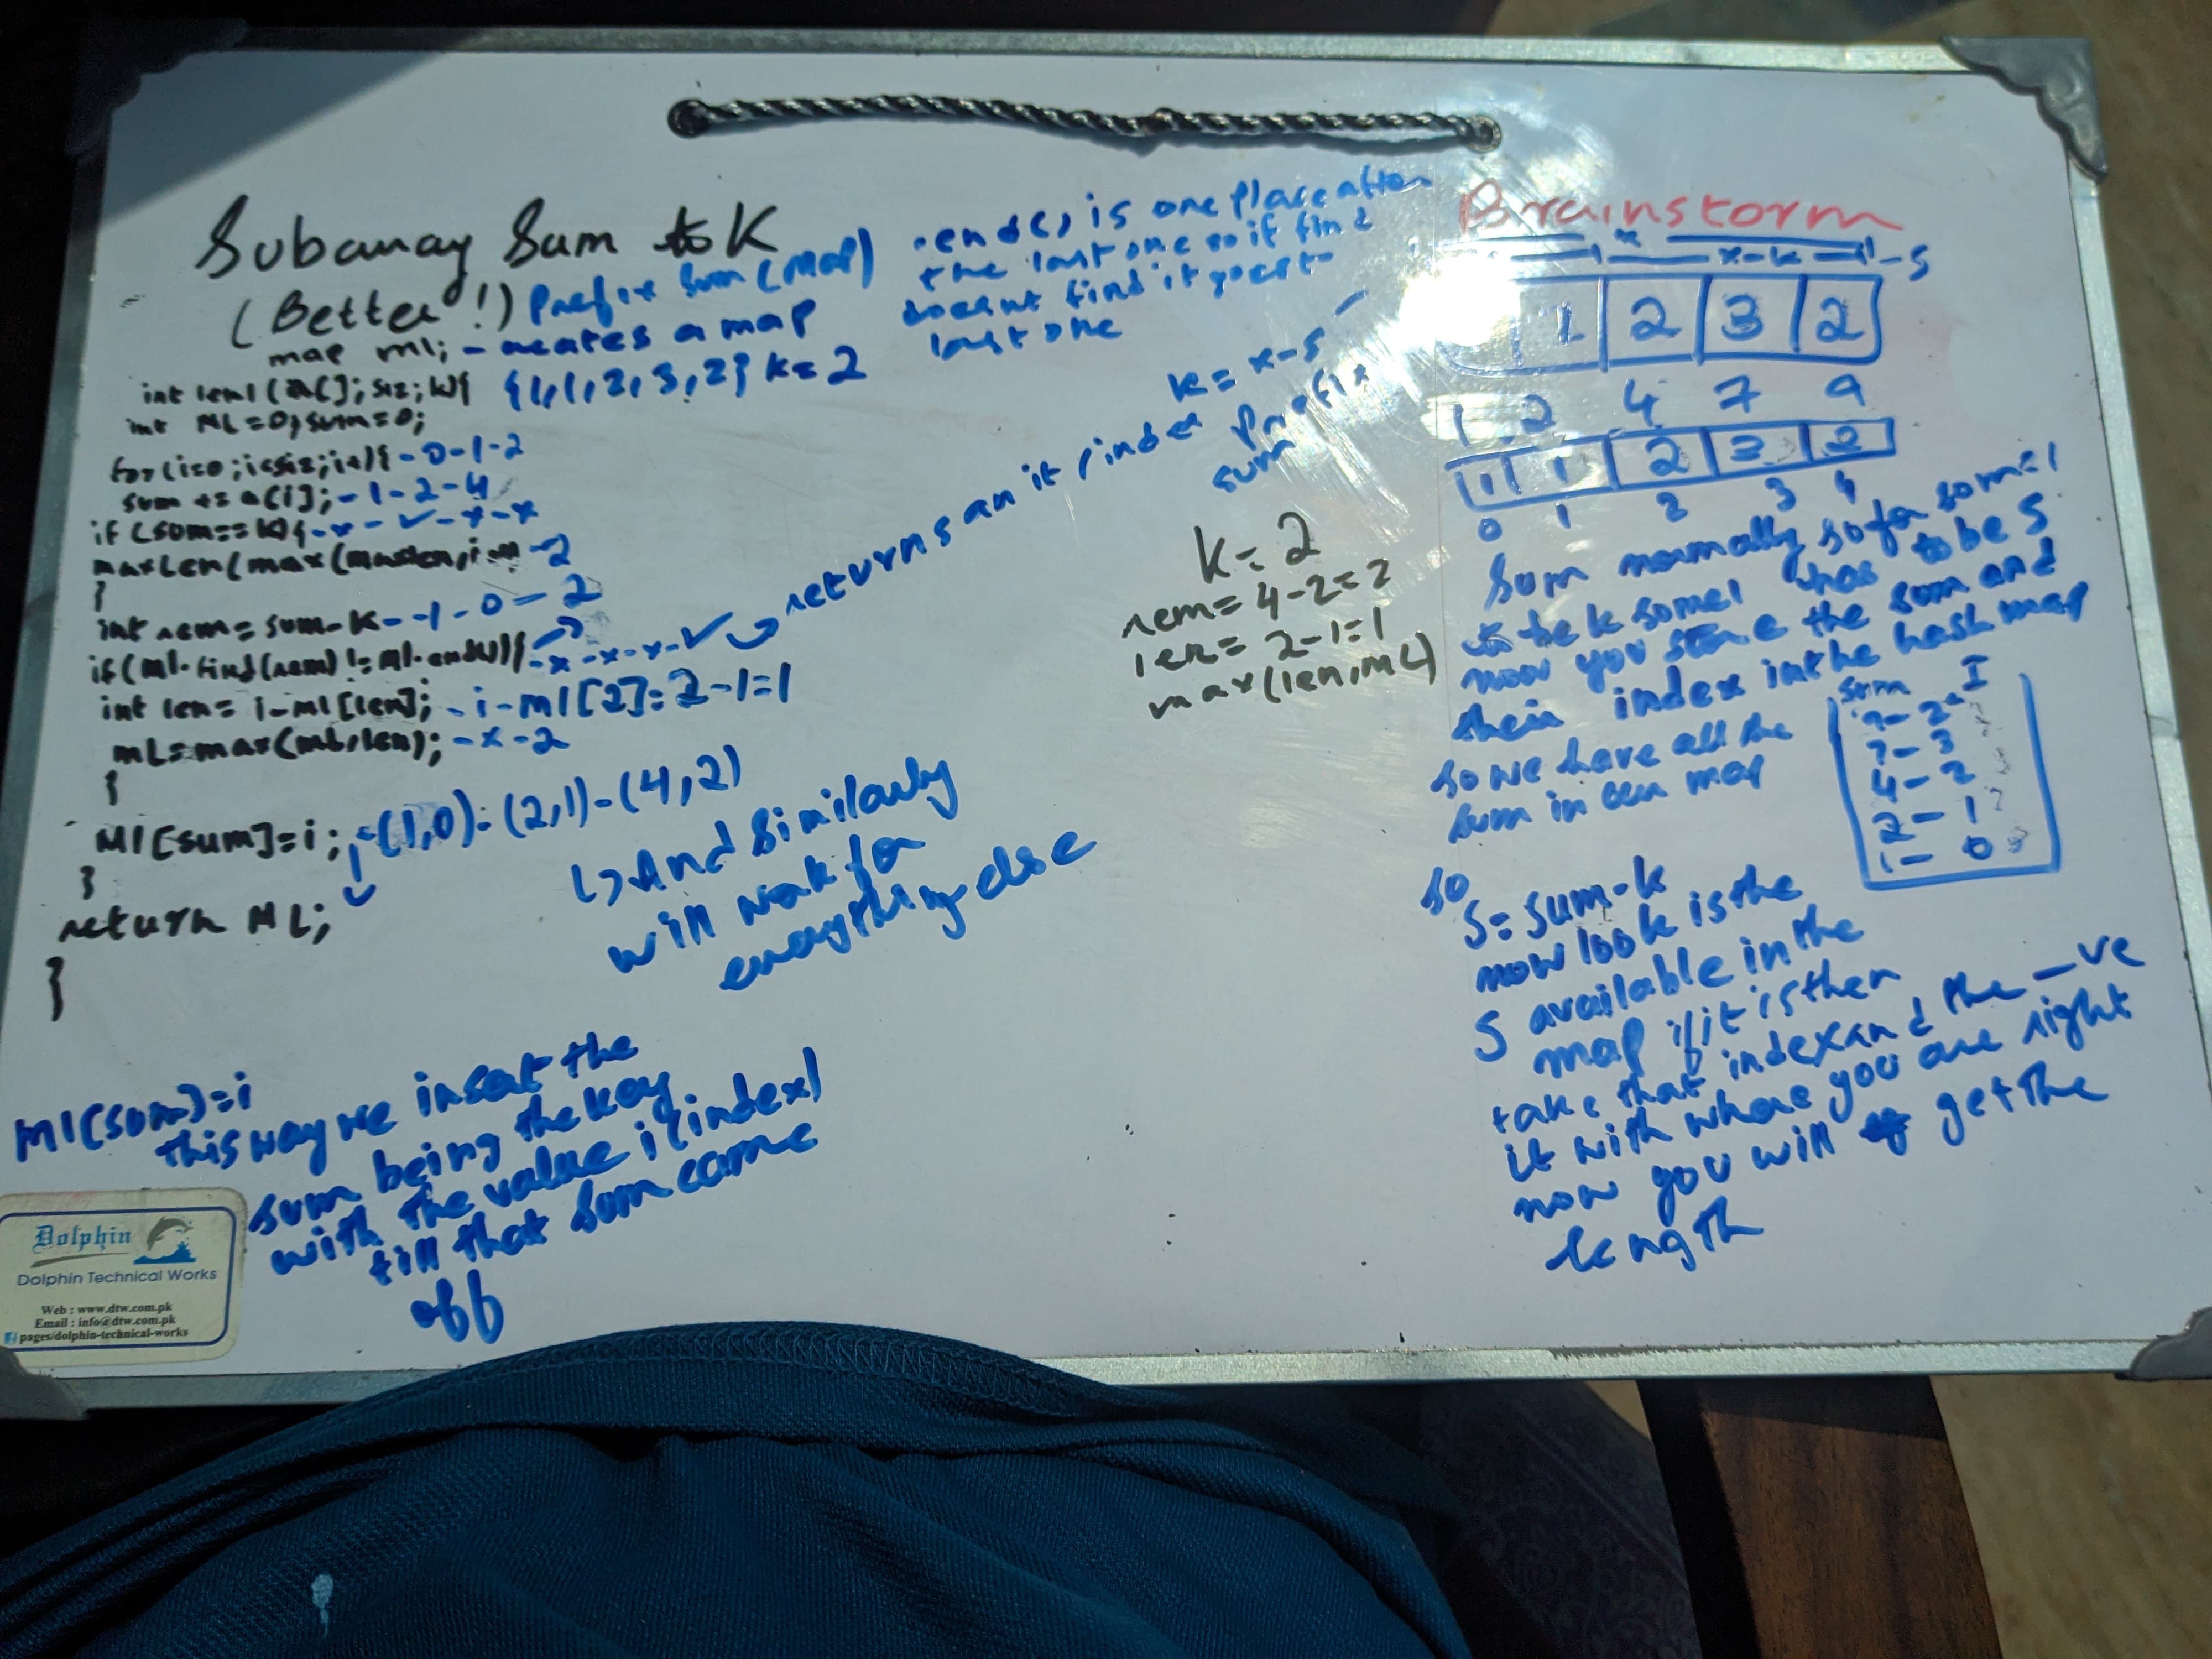 Subarray Sum to K
(Better!) Prefix Sum (Map)
map m1; - creates a map
int len1(a[]; siz; k){ {1,1,2,3,2} k=2
int ML=0, sum=0;
for(i=0; i<siz; i++){ - 0 - 1 - 2
sum += a[i]; - 1 - 2 - 4
if (sum==k){ - x - ✓ - x - x
maxLen(max(maxlen, i - 2
}
int rem = sum-k - -1 - 0 - 2
if(m1.find(rem) != m1.end()){ - x - x - x - ✓ returns an it / index
int len = i-m1[len]; - i-m1[2]=2-1=1
mL=max(mL,len); - x - 2
}
M1[sum]=i; - (1,0) - (2,1) - (4,2)
}
return ML;
}
↳ And similarly
will work for
everything else
M1[sum]=i
this way we insert the
sum being the key
with the value i(index)
till that sum came
off
.end() is one place after
the last one so if find
doesnt find it goes to
last one
k = x-s
Prefix
sum
K=2
rem= 4-2=2
len= 2-1=1
max(len,mL)
Brainstorm
x
x-k - s
1 2 3 2
1 2 4 7 9
1 1 2 3 2
0 1 2 3 4
Sum normally so for some1
to be k some1 has to be S
now you store the sum and
their index in the hash map
so we have all the
sum in our map
sum I
7-3
4-2
2-1
1-0
so
S=sum-k
now look is the
S available in the
map if it is then
take that index and the -ve
it with where you are right
now you will get the
length
Dolphin
Dolphin Technical Works
Web : www.dtw.com.pk
Email : info@dtw.com.pk
f pages/dolphin-technical-works